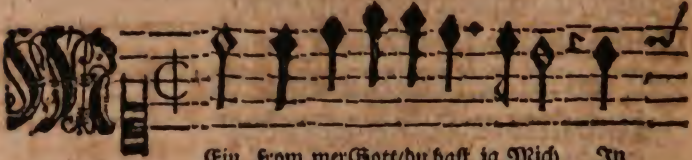 M Ein from mer Gott/du hast ja Mich In